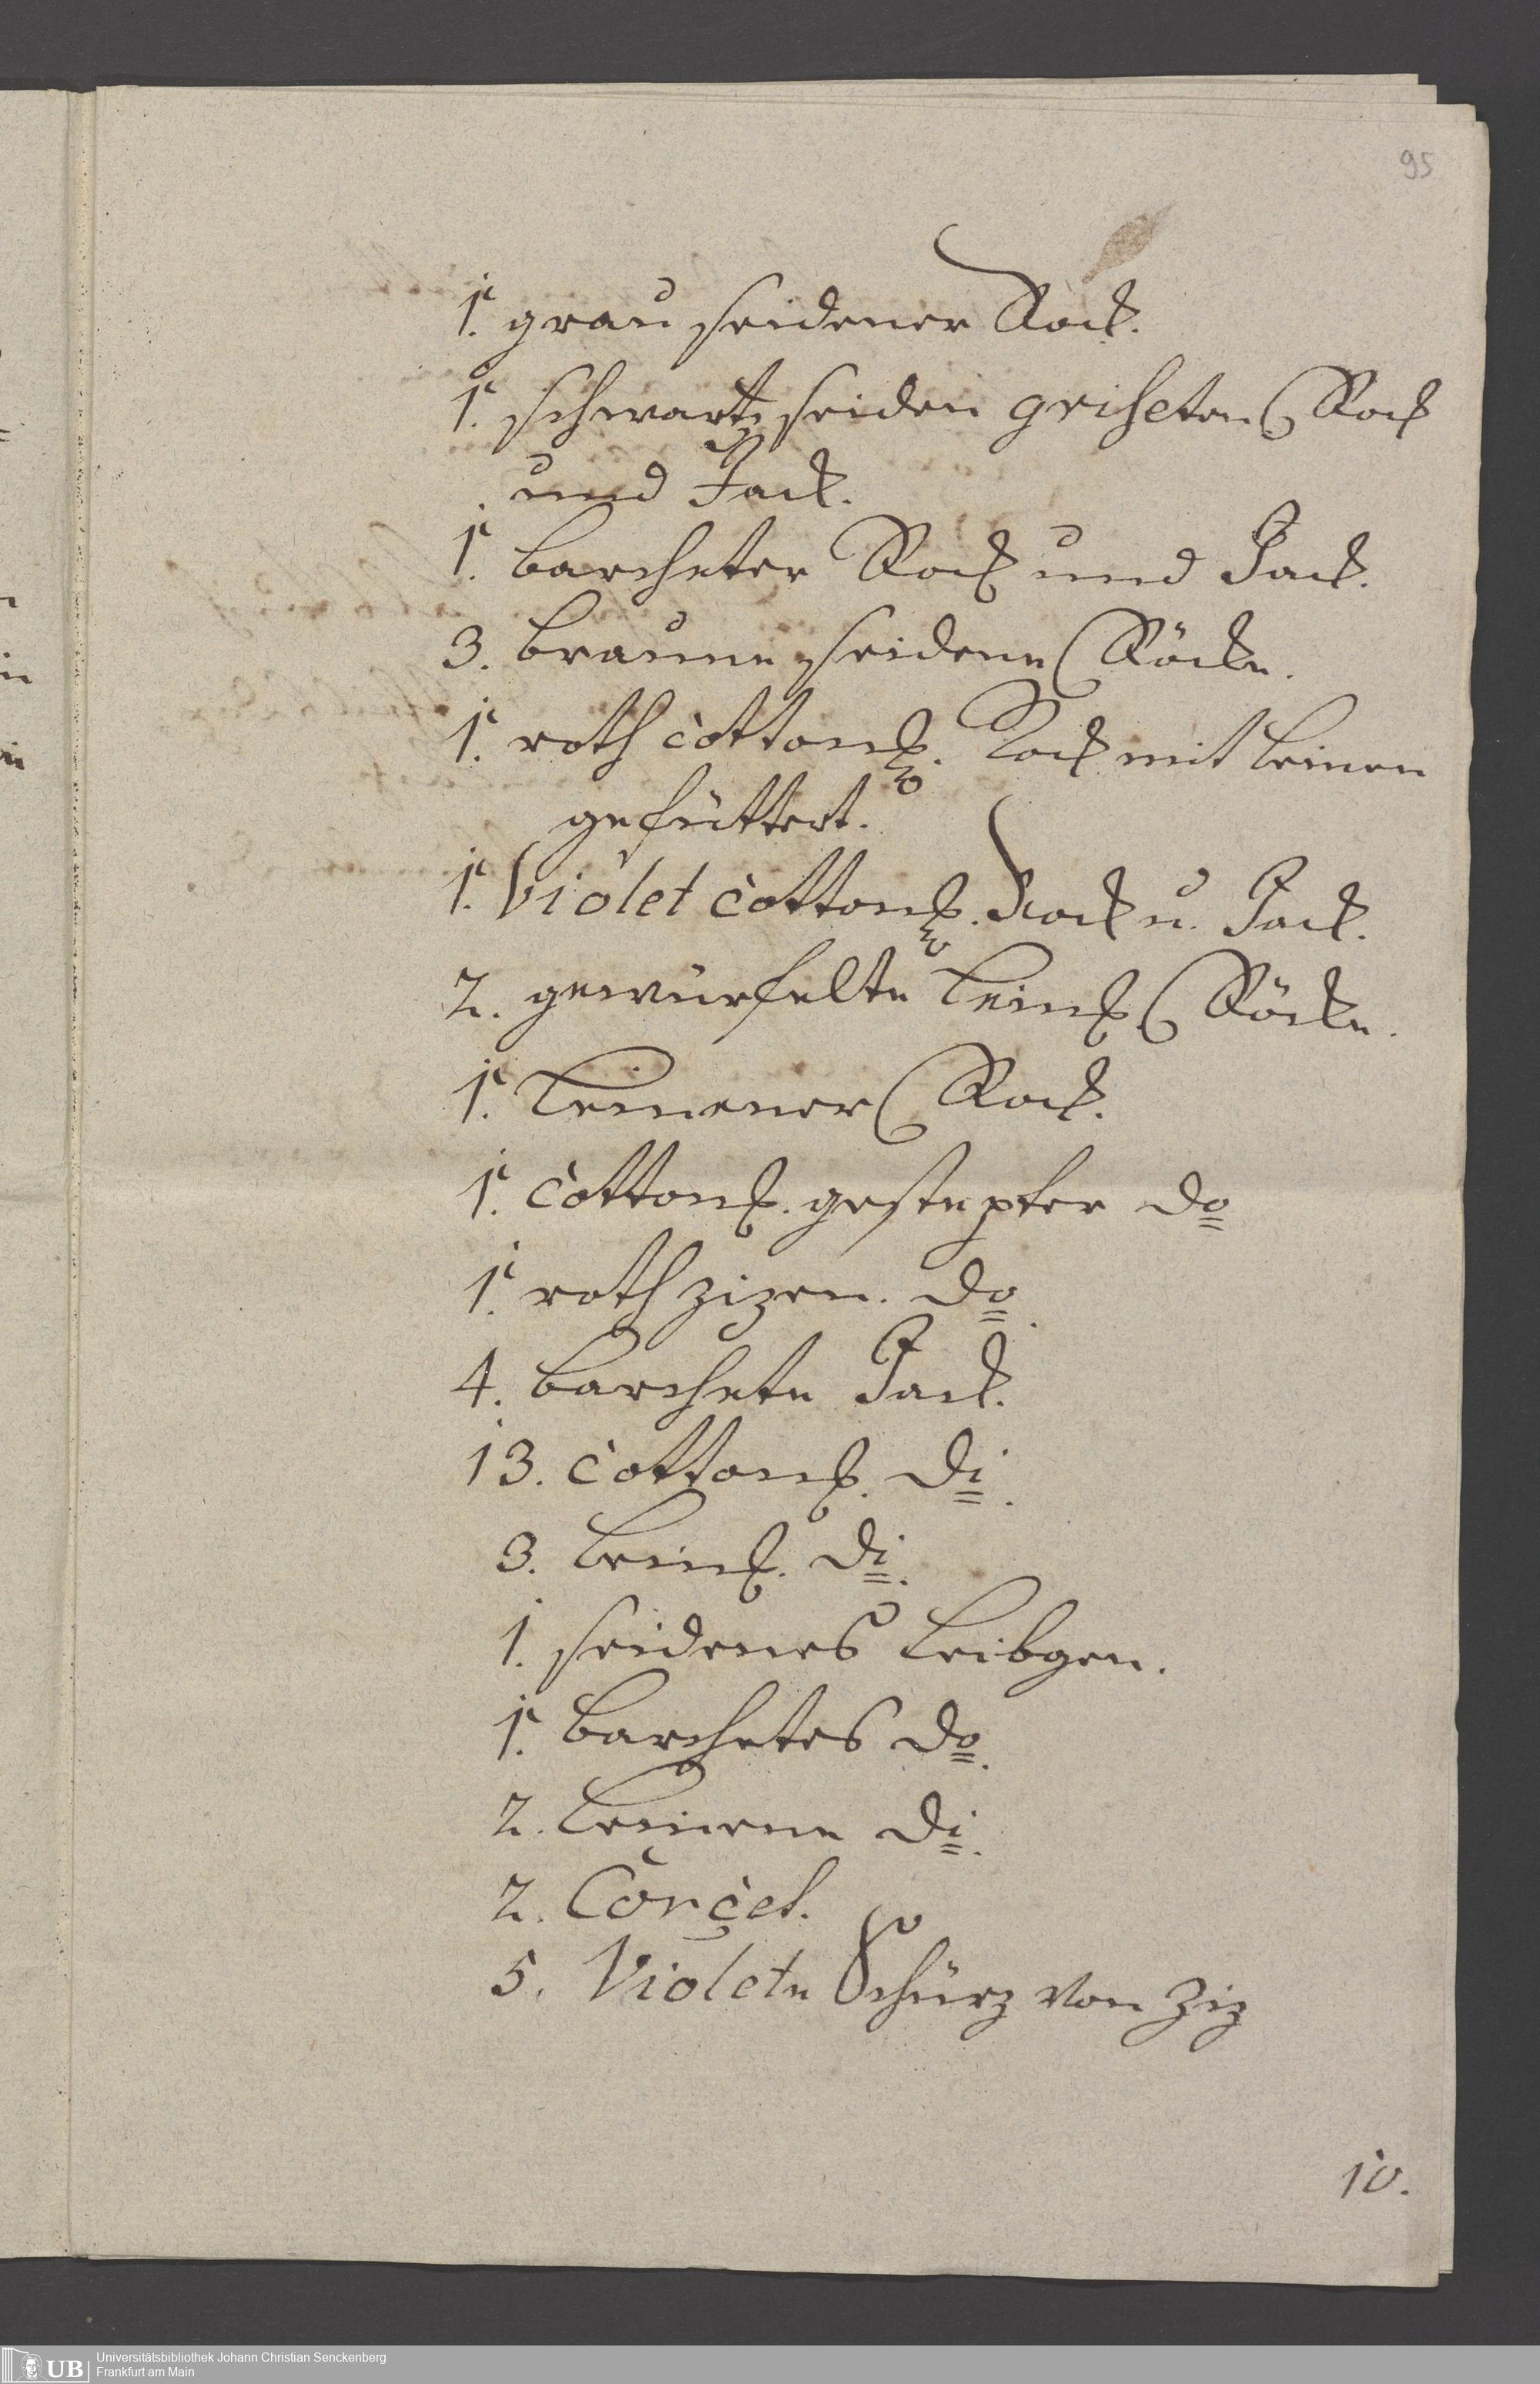 95
1. grau seidener Rock.
1. schwartz seiden griseten Rock
und Jack.
1. barcheter Rock und Jack.
3. braune seidene Röcke.
1. roth cotton. Rock mit leinen
gefüttert.
1. Violet cotton. Rock u. Jack.
2. gewürfelte lein. Röcke.
1. leinener Rock.
1. cotton. gestepter do
1. roth zizen. do.
4. barchete Jack.
13. cotton. di.
3. lein. di.
1. seidenes Leibgen.
1. barchetes do.
2. leinene di.
2. Corçet.
5. Violete Schürz von Ziz
10.
UB
Universitätsbibliothek Johann Christian Senckenberg
Frankfurt am Main